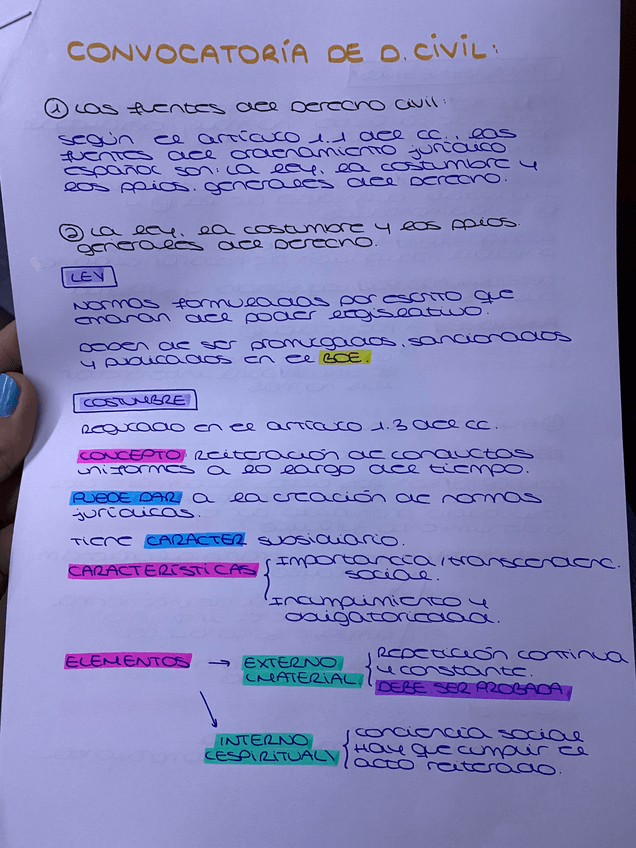 CONVOCATORÍA DE D. CIVIL:
① Las fuentes del Derecho Civil:
según el artículo 1.1 del cc., las
fuentes del ordenamiento jurídico
español son: la ley, la costumbre y
los ppios. generales del derecho.
② La ley, la costumbre y los ppios.
generales del derecho.
LEY
Normas formuladas por escrito que
emanan del poder legislativo.
Deben de ser promulgados, sancionados
y publicados en el BOE.
COSTUMBRE
Regulado en el artículo 1.3 del cc.
CONCEPTO Reiteración de conductas
uniformes a lo largo del tiempo.
PUEDE DAR a la creación de normas
jurídicas.
Tiene CARÁCTER subsidiario.
CARACTERÍSTICAS Importancia/transcendenc.
social.
Incumplimiento y
obligatoriedad.
ELEMENTOS → EXTERNO Repetición continua
(MATERIAL. y constante.
DEBE SER PROBADA.
INTERNO Conciencia social
(ESPIRITUAL) Hay que cumplir el
acto reiterado.